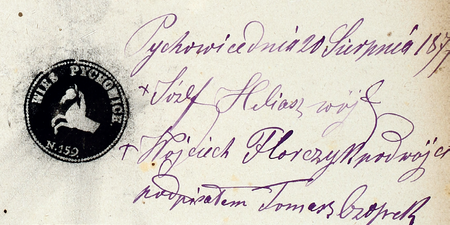 WIEŚ PYCHOWICE
N. 159
Pychowice dnia 20 Sierpnia 187
+ Józef Heliasz wójt
+ Wojciech Florczyk podwójci
podpisałem Tomasz Czopek